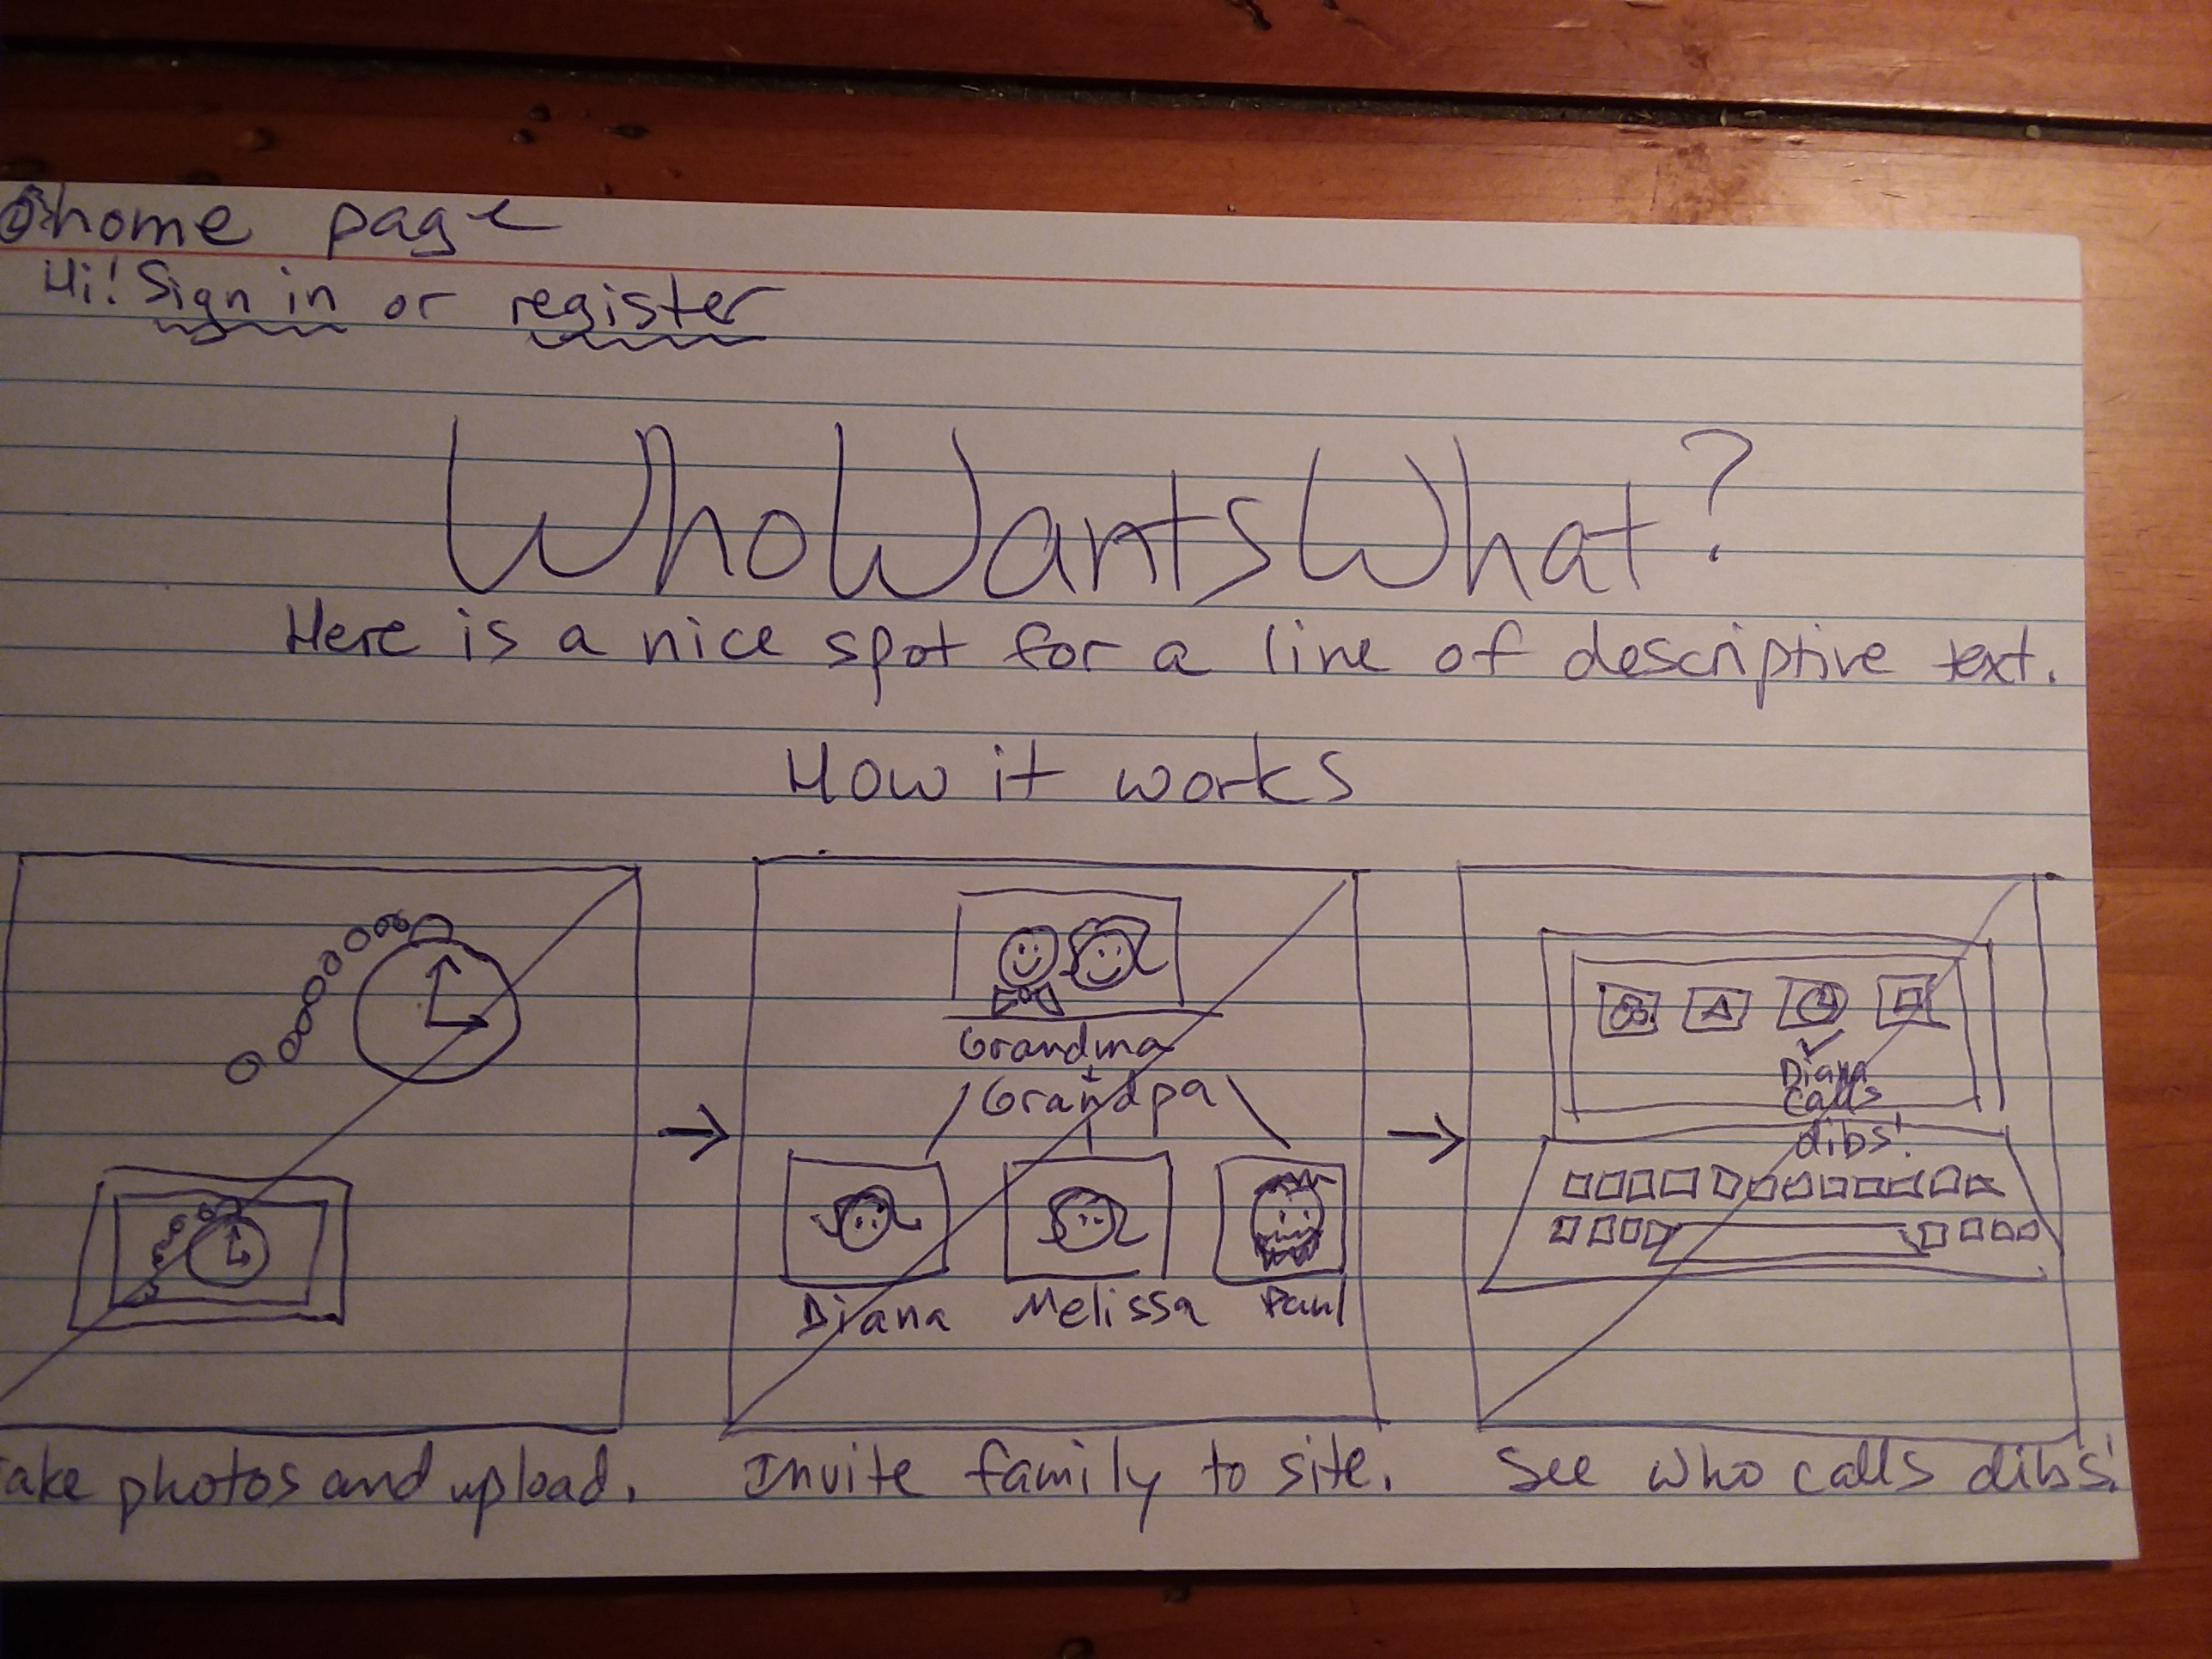 home page
Hi! Sign in or register
WhoWantsWhat?
Here is a nice spot for a line of descriptive text.
How it works
Grandma
+
Grandpa
Diana Melissa Paul
Diana
calls
dibs!
ake photos and upload. Invite family to site. See who calls dibs!